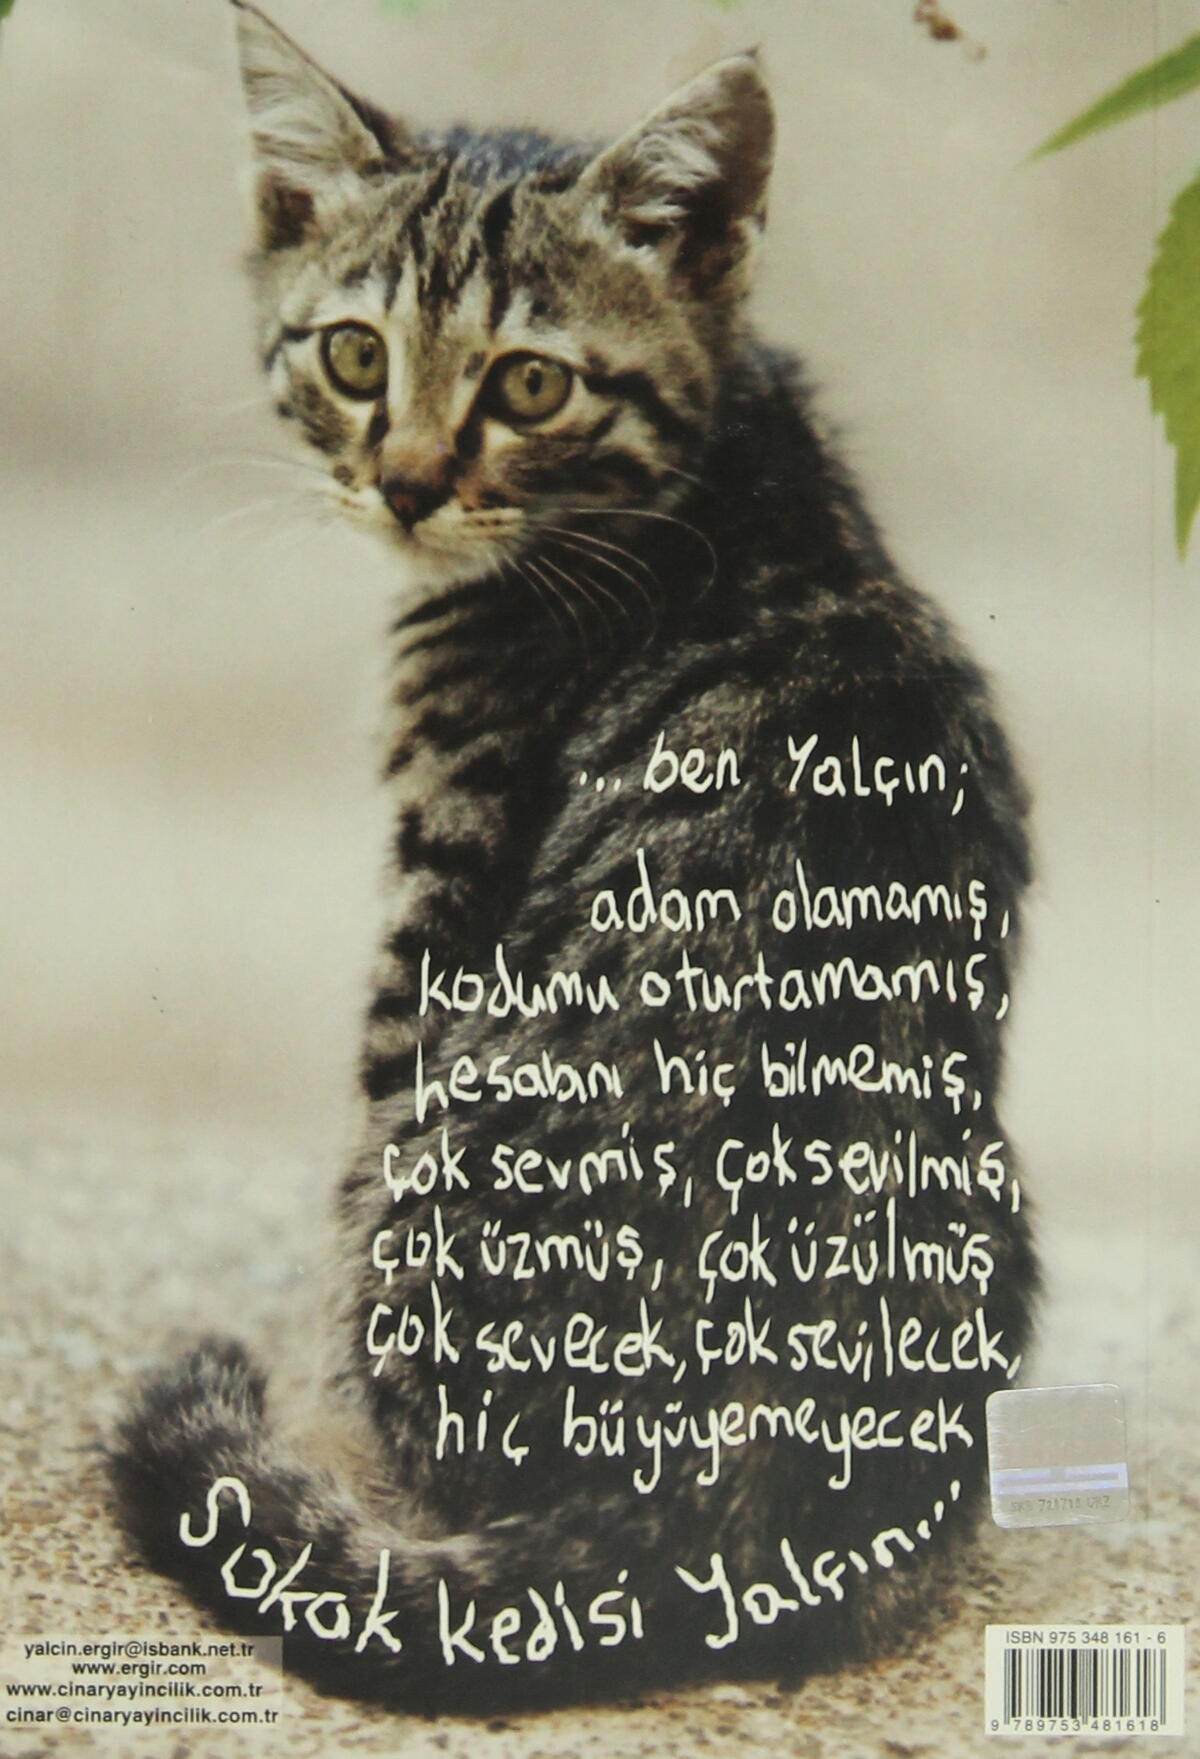 ... ben Yalçın;
adam olamamış,
kodumu oturtamamış,
hesabını hiç bilmemiş,
çok sevmiş, çok sevilmiş,
çok üzmüş, çok üzülmüş
çok sevecek, çok sevilecek,
hiç büyüyemeyecek
Sokak kedisi Yalçın...
yalcin.ergir@isbank.net.tr
www.ergir.com
www.cinaryayincilik.com.tr
cinar@cinaryayincilik.com.tr
ISBN 975 348 161 - 6
9 789753 481618